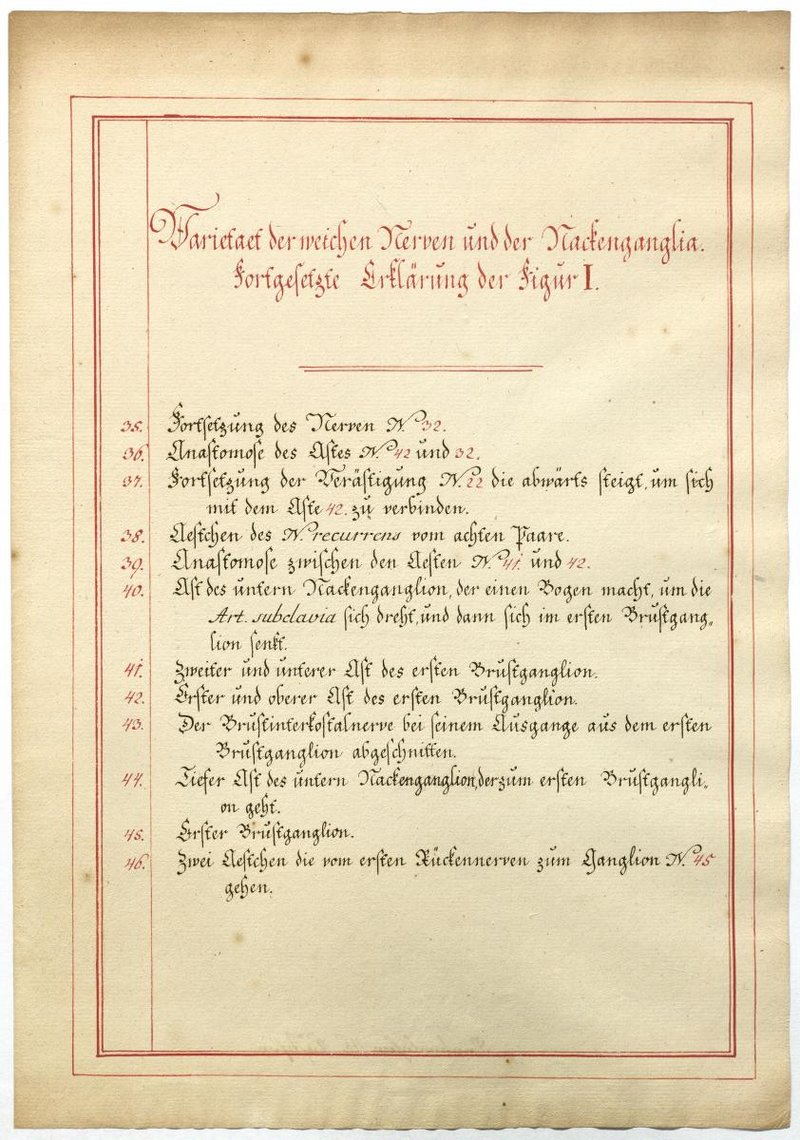 Varietaet der weichen Nerven und der Nackenganglia.
Fortgesetzte Erklärung der Figur I.
35. Fortsetzung des Nerven N.º 32.
36. Anastomose des Astes N.º 42 und 32.
37. Fortsetzung der Verästigung N. 22 die abwärts steigt, um sich
mit dem Aste 42. zu verbinden.
38. Aestchen des N. recurrens vom achten Paare.
39. Anastomose zwischen den Aesten N.º 41. und 42.
40. Ast des untern Nackenganglion, der einen Bogen macht, um die
Art. subclavia sich dreht, und dann sich im ersten Brustgang„
lion senkt.
41. Zweiter und unterer Ast des ersten Brustganglion.
42. Erster und oberer Ast des ersten Brustganglion.
43. Der Brustinterkostalnerve bei seinem Ausgange aus dem ersten
Brustganglion abgeschnitten.
44. Tiefer Ast des untern Nackenganglion, der zum ersten Brustgangli„
on geht.
45. Erster Brustganglion.
46. Zwei Aestchen die vom ersten Rückennerven zum Ganglion N.º 45
gehen.